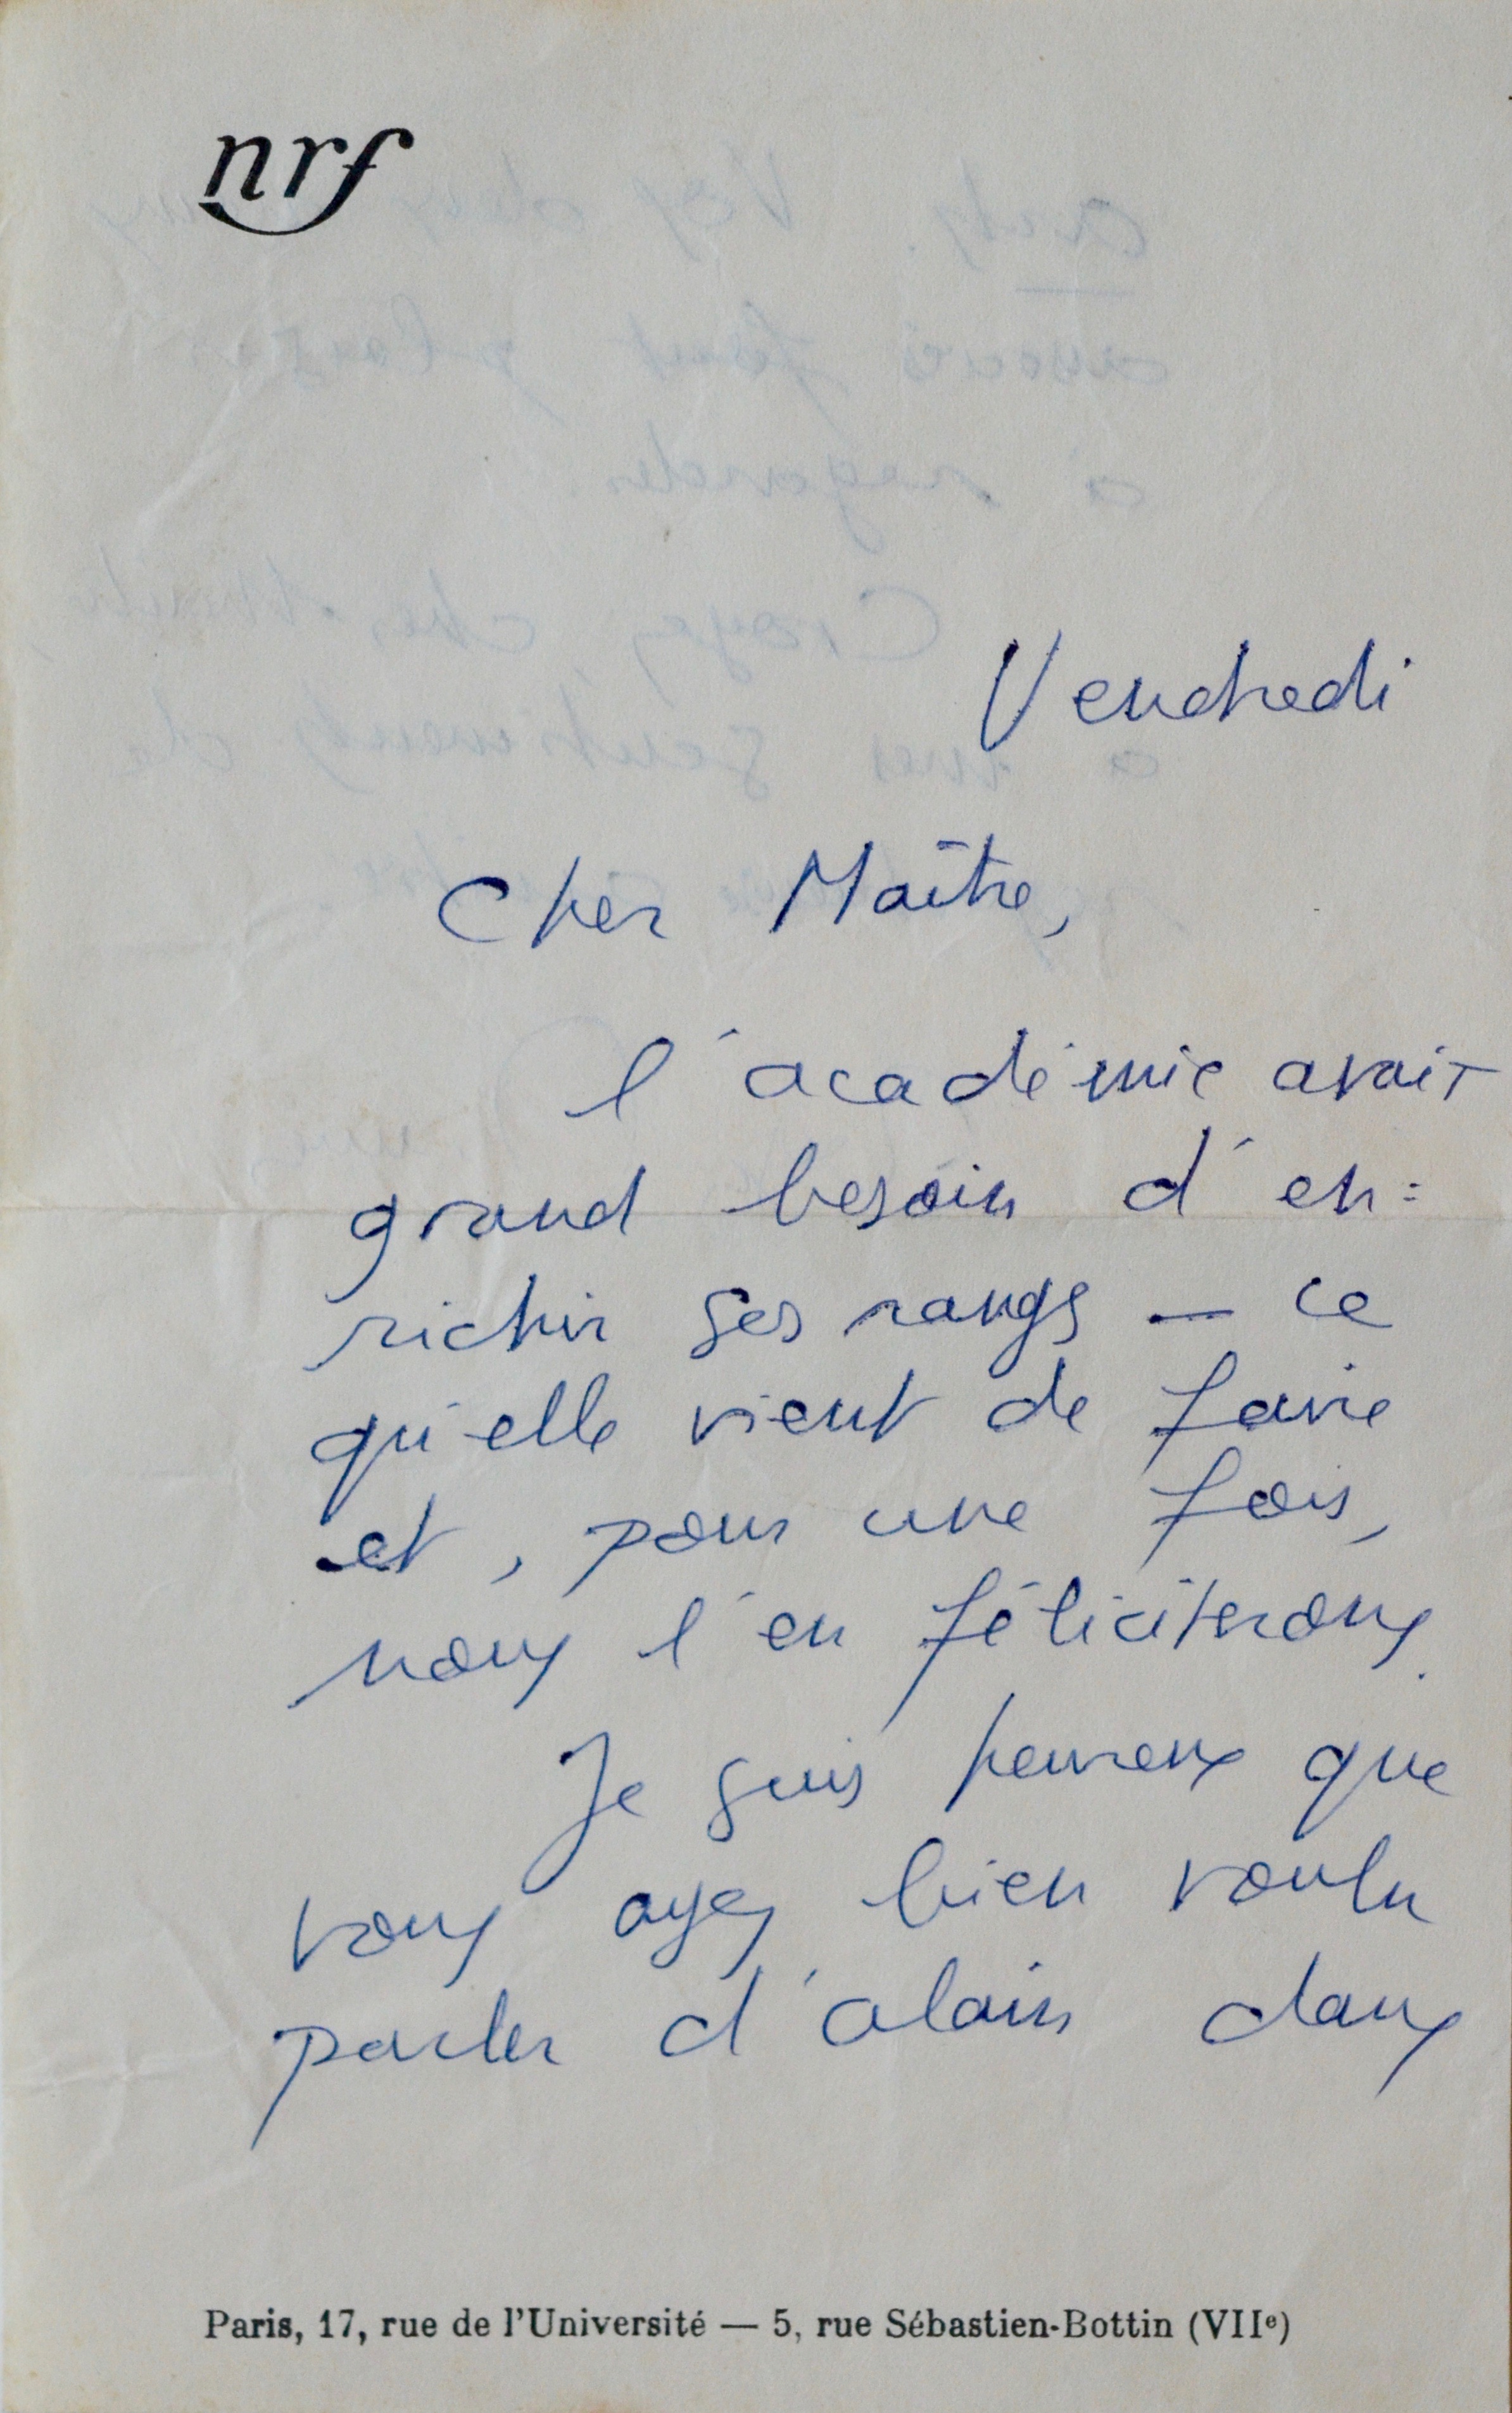 nrf
Vendredi
Cher Maître,
l'académie avait
grand besoin d'en=
richir ses rangs — ce
qu'elle vient de faire
et, pour une fois,
nous l'en féliciterons.
Je suis heureux que
vous ayez bien voulu
parler d'alain dans
Paris, 17, rue de l'Université — 5, rue Sébastien-Bottin (VIIe)